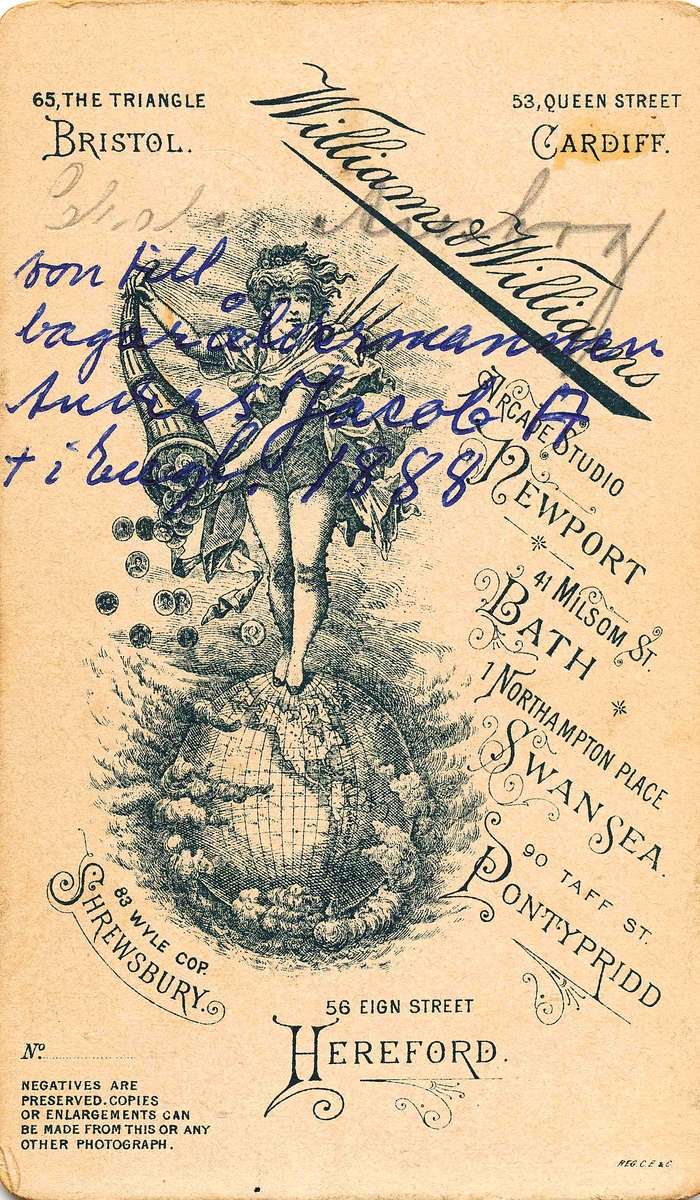 65, THE TRIANGLE
BRISTOL.
53, QUEEN STREET
CARDIFF.
Williams & Williams
son till
bagaråldermannen
Anders Jacob A
† i Engl. 1888
ARCADE STUDIO
NEWPORT
41 MILSOM ST.
BATH
1 NORTHAMPTON PLACE
SWANSEA.
90 TAFF ST.
PONTYPRIDD
83 WYLE COP.
SHREWSBURY.
56 EIGN STREET
HEREFORD.
No.
NEGATIVES ARE
PRESERVED. COPIES
OR ENLARGEMENTS CAN
BE MADE FROM THIS OR ANY
OTHER PHOTOGRAPH.
REG. C. E & C.